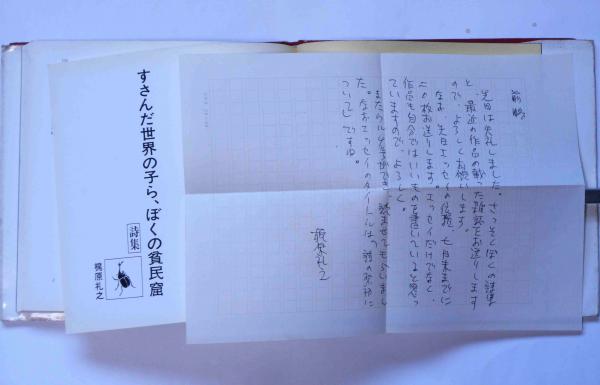 前略
先日は失礼しました。さっそくぼくの詩集
と、最近の作品の載った雑誌をお送りします
ので、よろしくお願いします。
なお、先日エッセイの依頼、七月末までに
二か枚お送りします。エッセイだけでなく、
作品も自分ではいいものを書いていると思っ
ていますので、よろしく。
また、ができ、読ませてもらいまし
た。なおエッセイのタイトルは、詩の発行に
ついてじですね。
梶原礼之
すさんだ世界の子ら、ぼくの貧民窟
詩集
梶原礼之